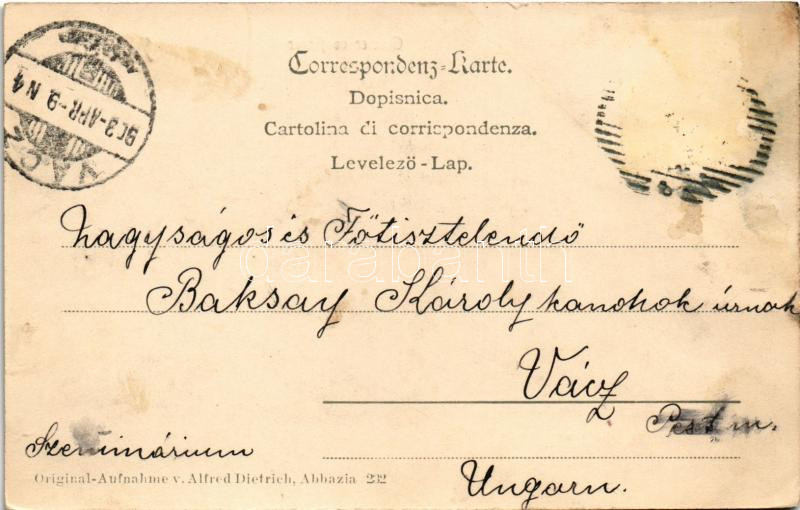 Correspondenz-Karte.
Dopisnica.
Cartolina di corrispondenza.
Levelező-Lap.
VÁCZ
903-APR-9. N 4
Nagyságos és Főtisztelendő
Baksay Károly kanonok úrnak
Vácz
Pest m.
Szeminárium
Ungarn.
Original-Aufnahme v. Alfred Dietrich, Abbazia 232
darabanth